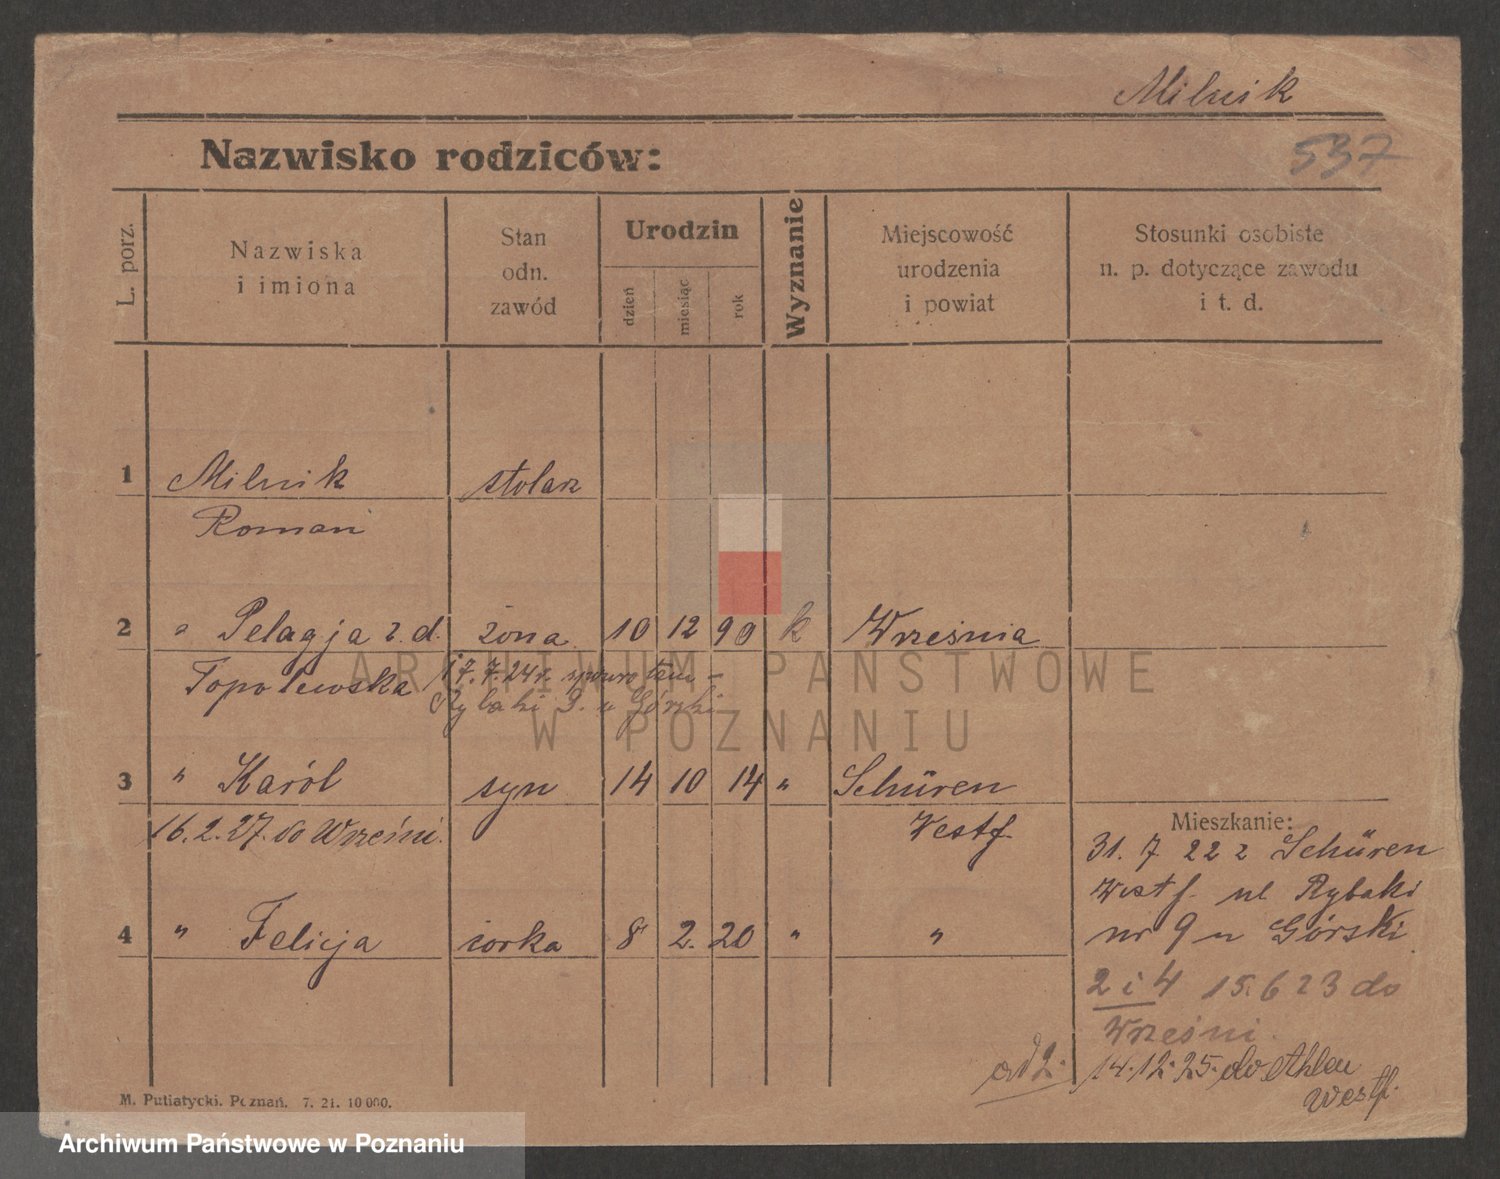 Milnik
Nazwisko rodziców:
537
L. porz.
Nazwiska
i imiona
Stan
odn.
zawód
Urodzin
dzień
miesiąc
rok
Wyznanie
Miejscowość
urodzenia
i powiat
Stosunki osobiste
n. p. dotyczące zawodu
i t. d.
1 Milnik stolarz
Roman
2 " Pelagja z. d. żona 10 12 90 k Września
Topolewska 17.7.24r. spowrotem -
Rybaki 9. u Górski
3 " Karól syn 14 10 14 " Schüren
16.2.27. do Wrześni. Westf.
4 " Felicja córka 8 2. 20 " "
Mieszkanie:
31. 7 22 z Schüren
Westf. ul Rybaki
nr 9 u Górski.
2 i 4 15.6 23 do
Wrześni.
ad 2. 14.12.25. do Ahlen
Westf.
M. Putiatycki. Poznań. 7. 21. 10 000.
ARCHIWUM PAŃSTWOWE
W POZNANIU
Archiwum Państwowe w Poznaniu